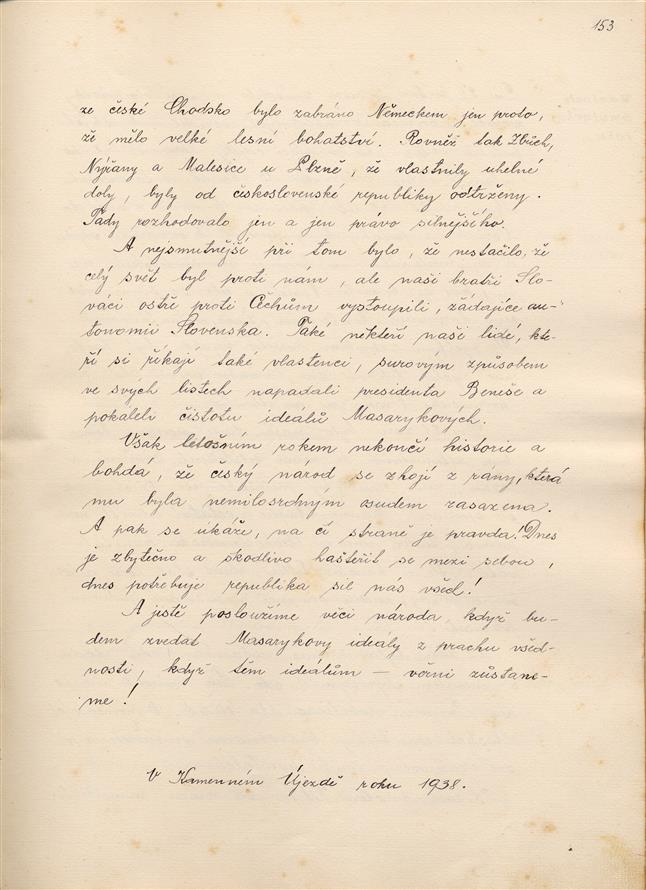 153
ze české Chodsko bylo zabráno Německem jen proto,
že mělo velké lesní bohatství. Rovněž tak Zbůch,
Nýřany a Malesice u Plzně, že vlastnily uhelné
doly, byly od československé republiky odtrženy.
Tady rozhodovalo jen a jen právo silnějšího.
A nejsmutnější při tom bylo, že nestačilo, že
celý svět byl proti nám, ale naši bratři Slo-
váci ostře proti Čechům vystoupili, žádajíce au-
tonomii Slovenska. Také někteří naši lidé, kte-
ří si říkají také vlastenci, surovým způsobem
ve svých listech napadali presidenta Beneše a
pokáleli čistotu ideálů Masarykových.
Však letošním rokem nekončí historie a
bohdá, že český národ se zhojí z rány, která
mu byla nemilosrdným osudem zasazena.
A pak se ukáže, na čí straně je pravda! Dnes
je zbytečno a škodlivo hašteřit se mezi sebou,
dnes potřebuje republika sil nás všech!
A jestě posloužíme věci národa, když bu-
dem zvedat Masarykovy ideály z prachu všed-
nosti, když těm ideálům — věrni zůstane-
me!
V Kamenném Újezdě roku 1938.